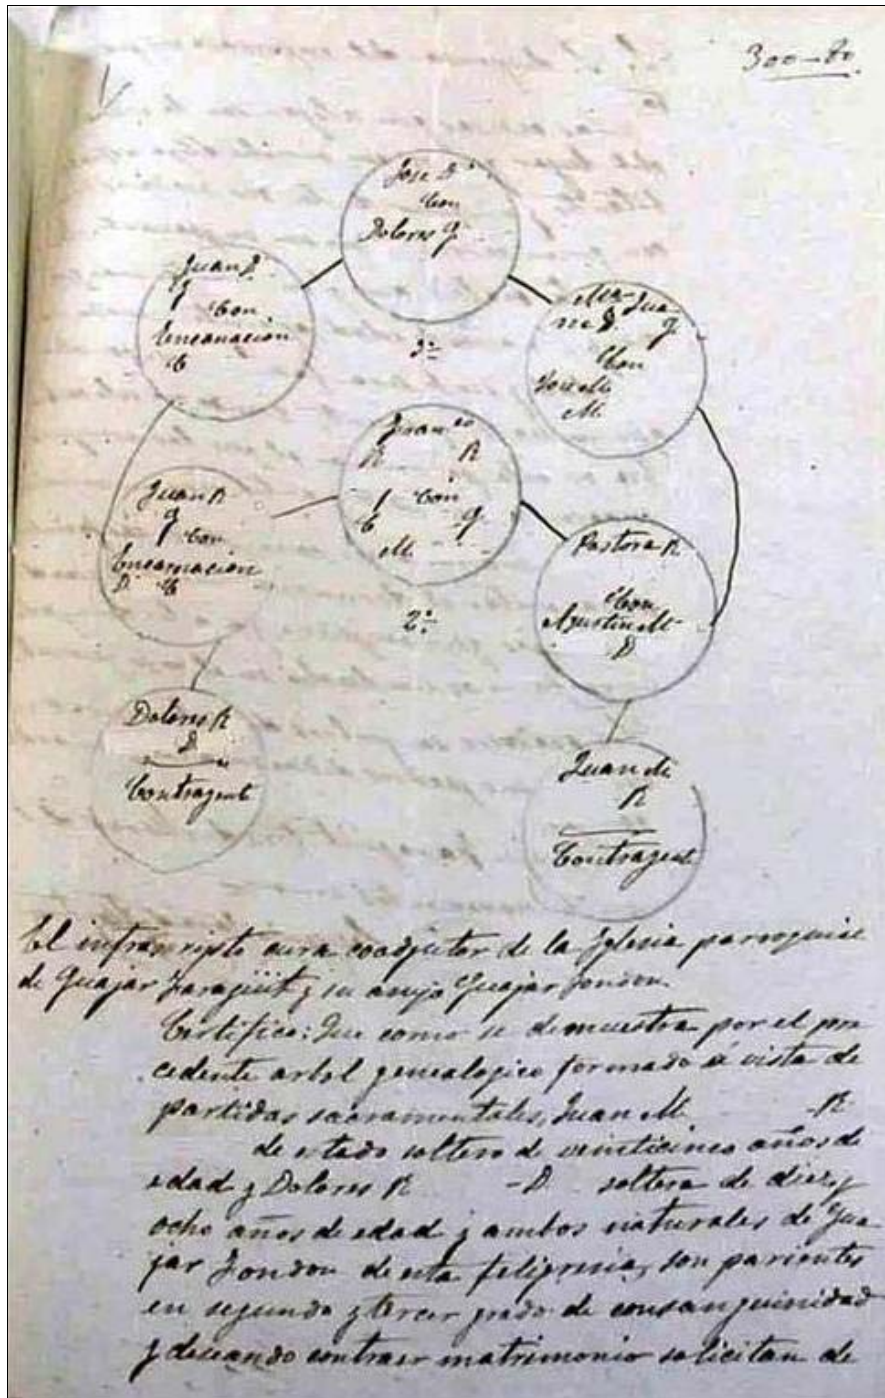 300-80
Jose D.
Con
Dolores G.
Juan D.
G
Con
Encarnación
C
Ma-
ria D.
G
Con
Jose M.
M.
3º
Fran.co
R R
Con
C G
M.
Juan R
G
Con
Encarnación
D. C
Pastora R
Con
Agustin M
D
2º
Dolores R
D
Contrayent
Juan M.
R
Contrayent
El infrascripto cura coadjutor de la Iglesia parroquial
de Guajar Faragüit y su anejo Guajar Fondon.
Certifico: Que como se demuestra por el pre
cedente arbol genealogico formado á vista de
partidas sacramentales, Juan M. -R.
de estado soltero de veinticinco años de
edad y Dolores R -D. soltera de diez y
ocho años de edad y ambos naturales de Gua
jar Fondon de esta feligresia, son parientes
en segundo y tercer grado de consanguinidad
y deseando contraer matrimonio solicitan de